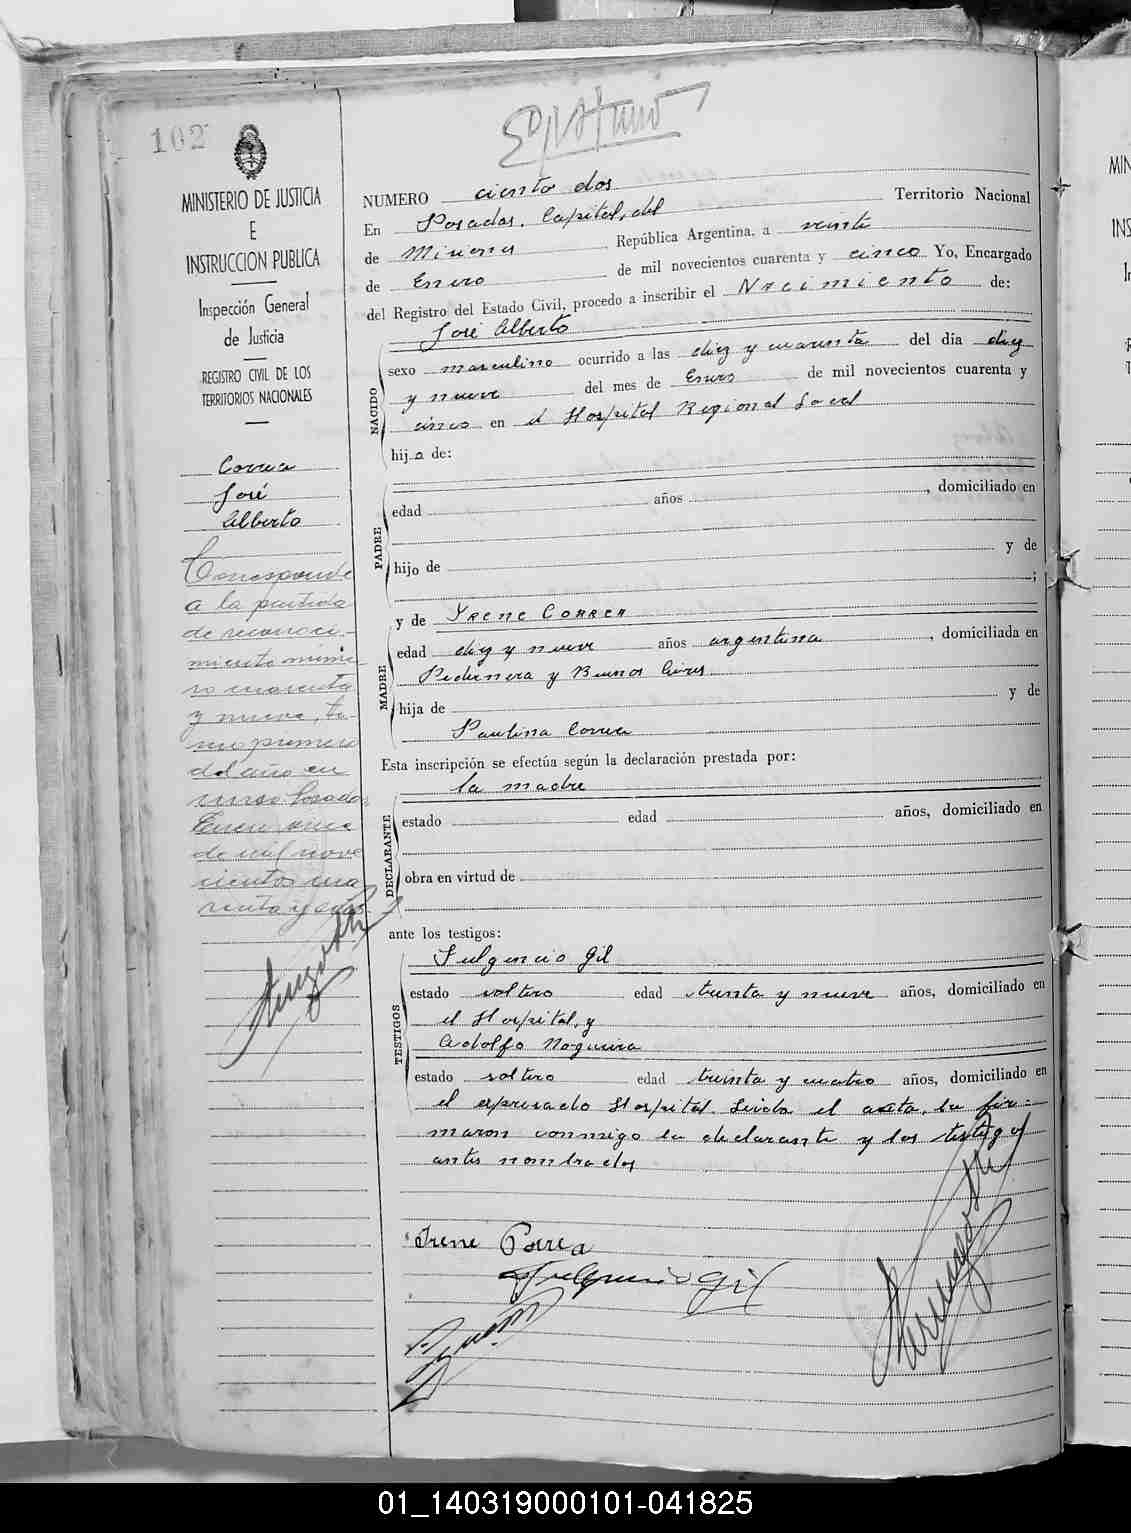 102
MINISTERIO DE JUSTICIA
E
INSTRUCCION PUBLICA
Inspección General
de Justicia
REGISTRO CIVIL DE LOS
TERRITORIOS NACIONALES
Correa
José
Alberto
Corresponde
a la partida
de reconoci-
miento núme
ro cuarenta
y nueve, to-
mo primero
del año en
curso Posadas
Enero
de mil nove
cientos cua
renta y
NUMERO ciento dos
En Posadas, Capital, del Territorio Nacional
de Misiones República Argentina, a veinte
de Enero de mil novecientos cuarenta y cinco Yo, Encargado
del Registro del Estado Civil, procedo a inscribir el Nacimiento de:
NACIDO
José Alberto
sexo masculino ocurrido a las diez y cuarenta del día diez
y nueve del mes de Enero de mil novecientos cuarenta y
cinco en el Hospital Regional Local
hijo de:
PADRE
edad años , domiciliado en
hijo de y de
;
MADRE
y de Irene Correa
edad diez y nueve años argentina , domiciliada en
Pedernera y Buenos Aires
hija de y de
Paulina Correa
Esta inscripción se efectúa según la declaración prestada por:
DECLARANTE
la madre
estado edad años, domiciliado en
obra en virtud de
ante los testigos:
TESTIGOS
Fulgencio Gil
estado soltero edad treinta y nueve años, domiciliado en
el Hospital, y
Adolfo Nogueira
estado soltero edad treinta y cuatro años, domiciliado en
el expresado Hospital. Leida el acta, la fir-
maron conmigo la declarante y los testigos
antes nombrados
Irene Correa
Fulgencio Gil
01_140319000101-041825